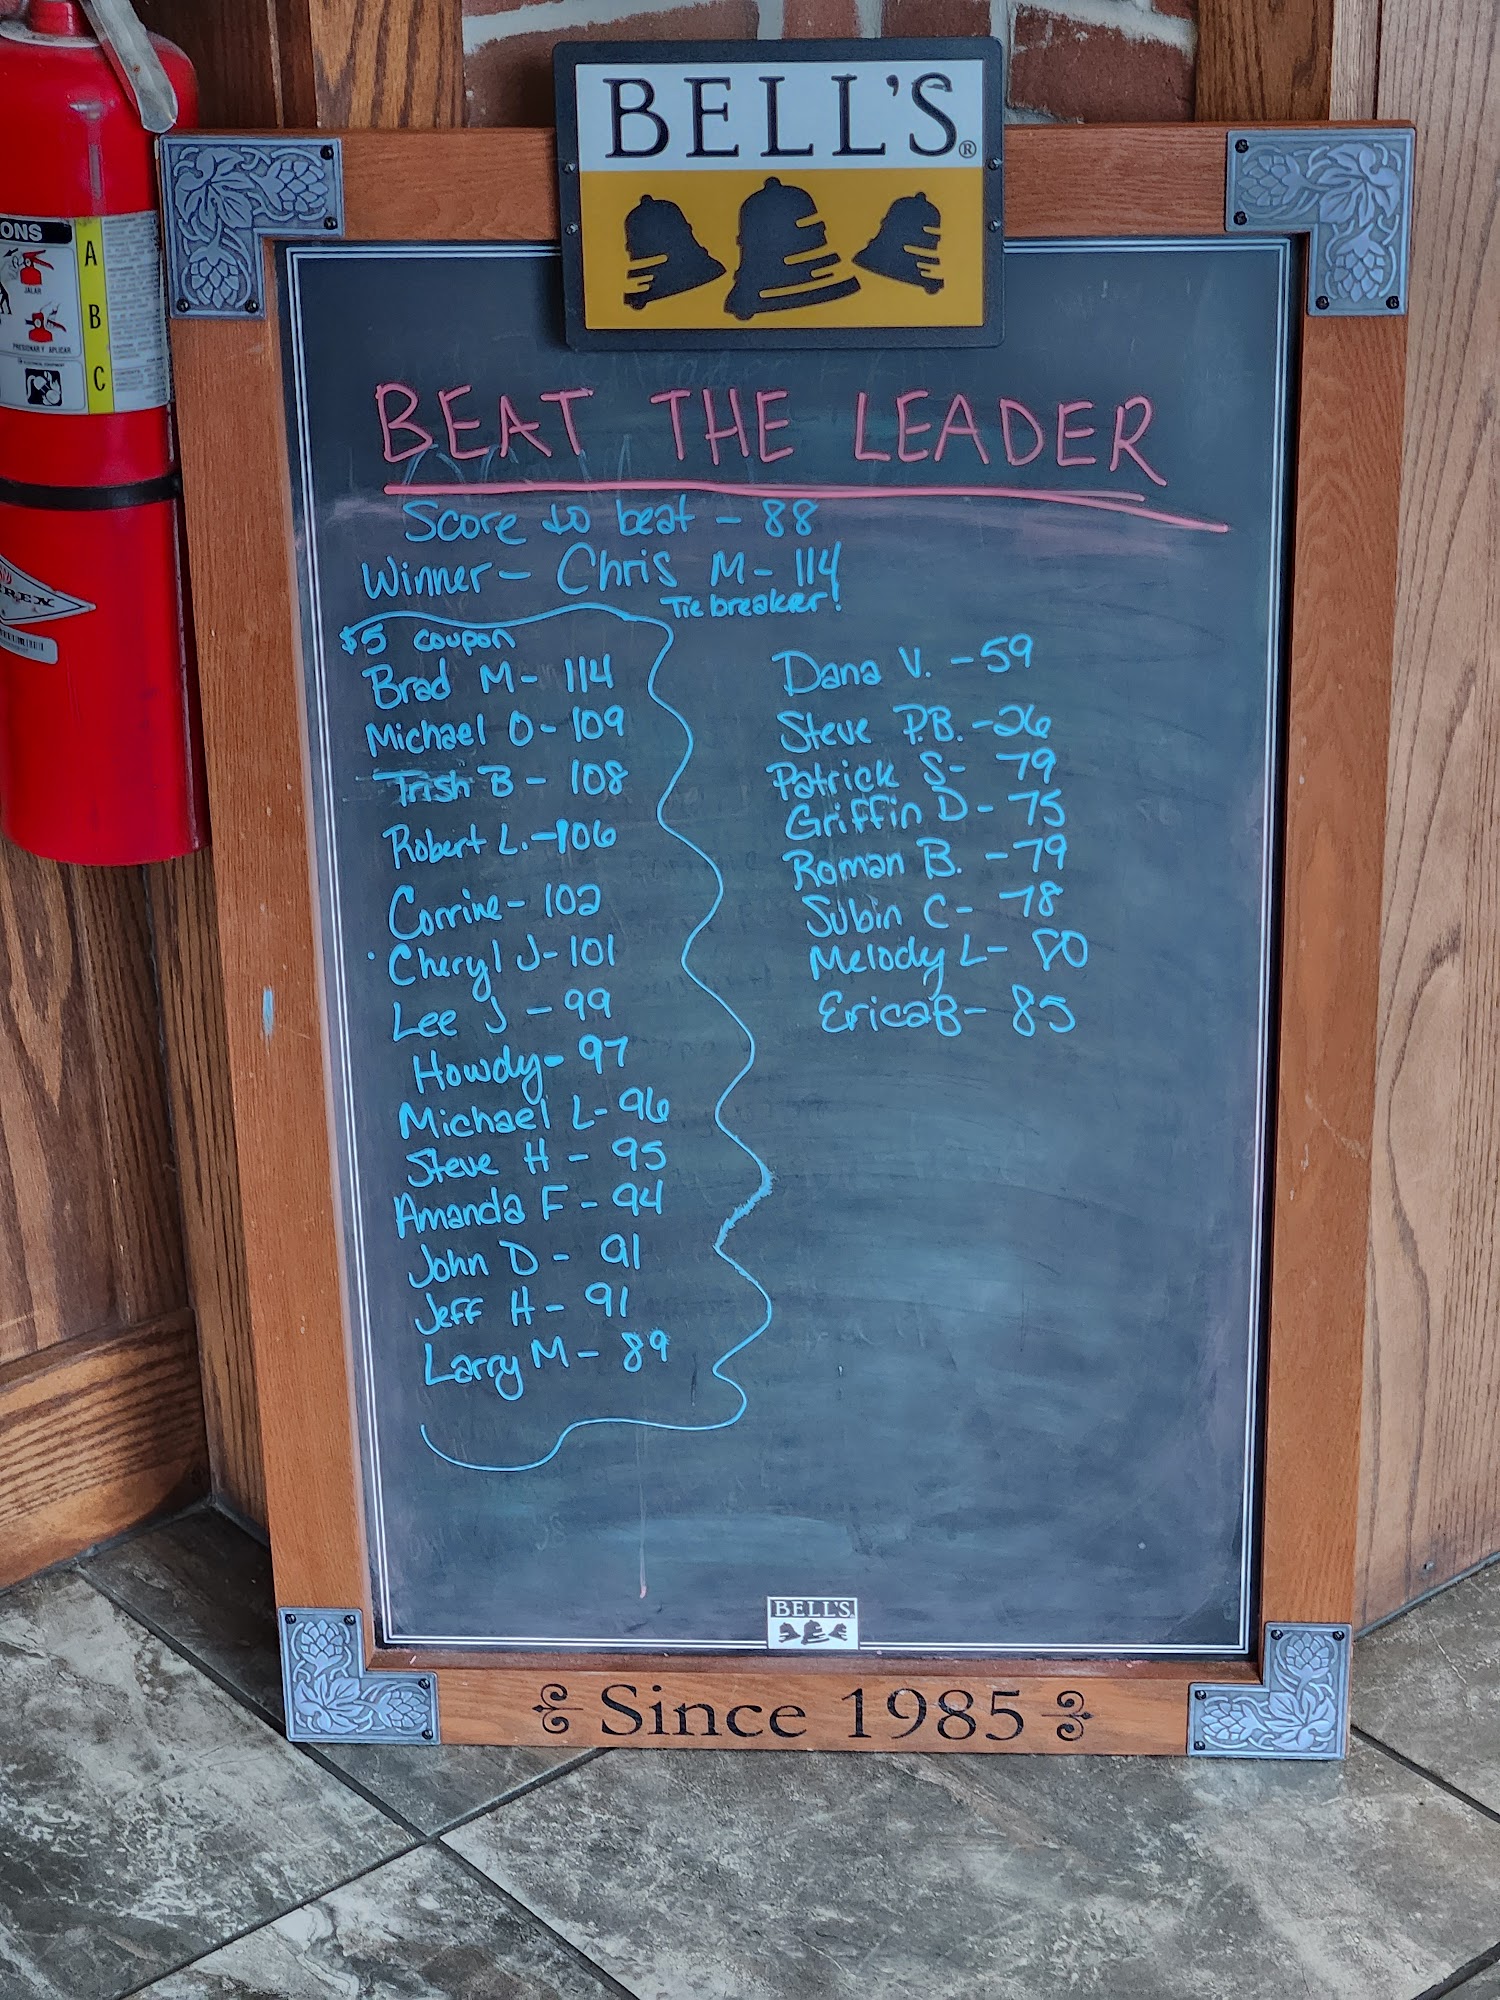 BELL'S®
BEAT THE LEADER
Score to beat - 88
Winner - Chris M - 114
Tie breaker!
$5 coupon
Brad M - 114
Michael O - 109
Trish B - 108
Robert L. - 106
Corrine - 102
Cheryl J - 101
Lee J - 99
Howdy - 97
Michael L - 96
Steve H - 95
Amanda F - 94
John D - 91
Jeff H - 91
Larry M - 89
Dana V. - 59
Steve P.B. - 26
Patrick S - 79
Griffin D - 75
Roman B. - 79
Subin C - 78
Melody L - 80
Erica B - 85
BELL'S
Since 1985
ONS
A
B
C
JALAR
PRESIONAR Y APLICAR